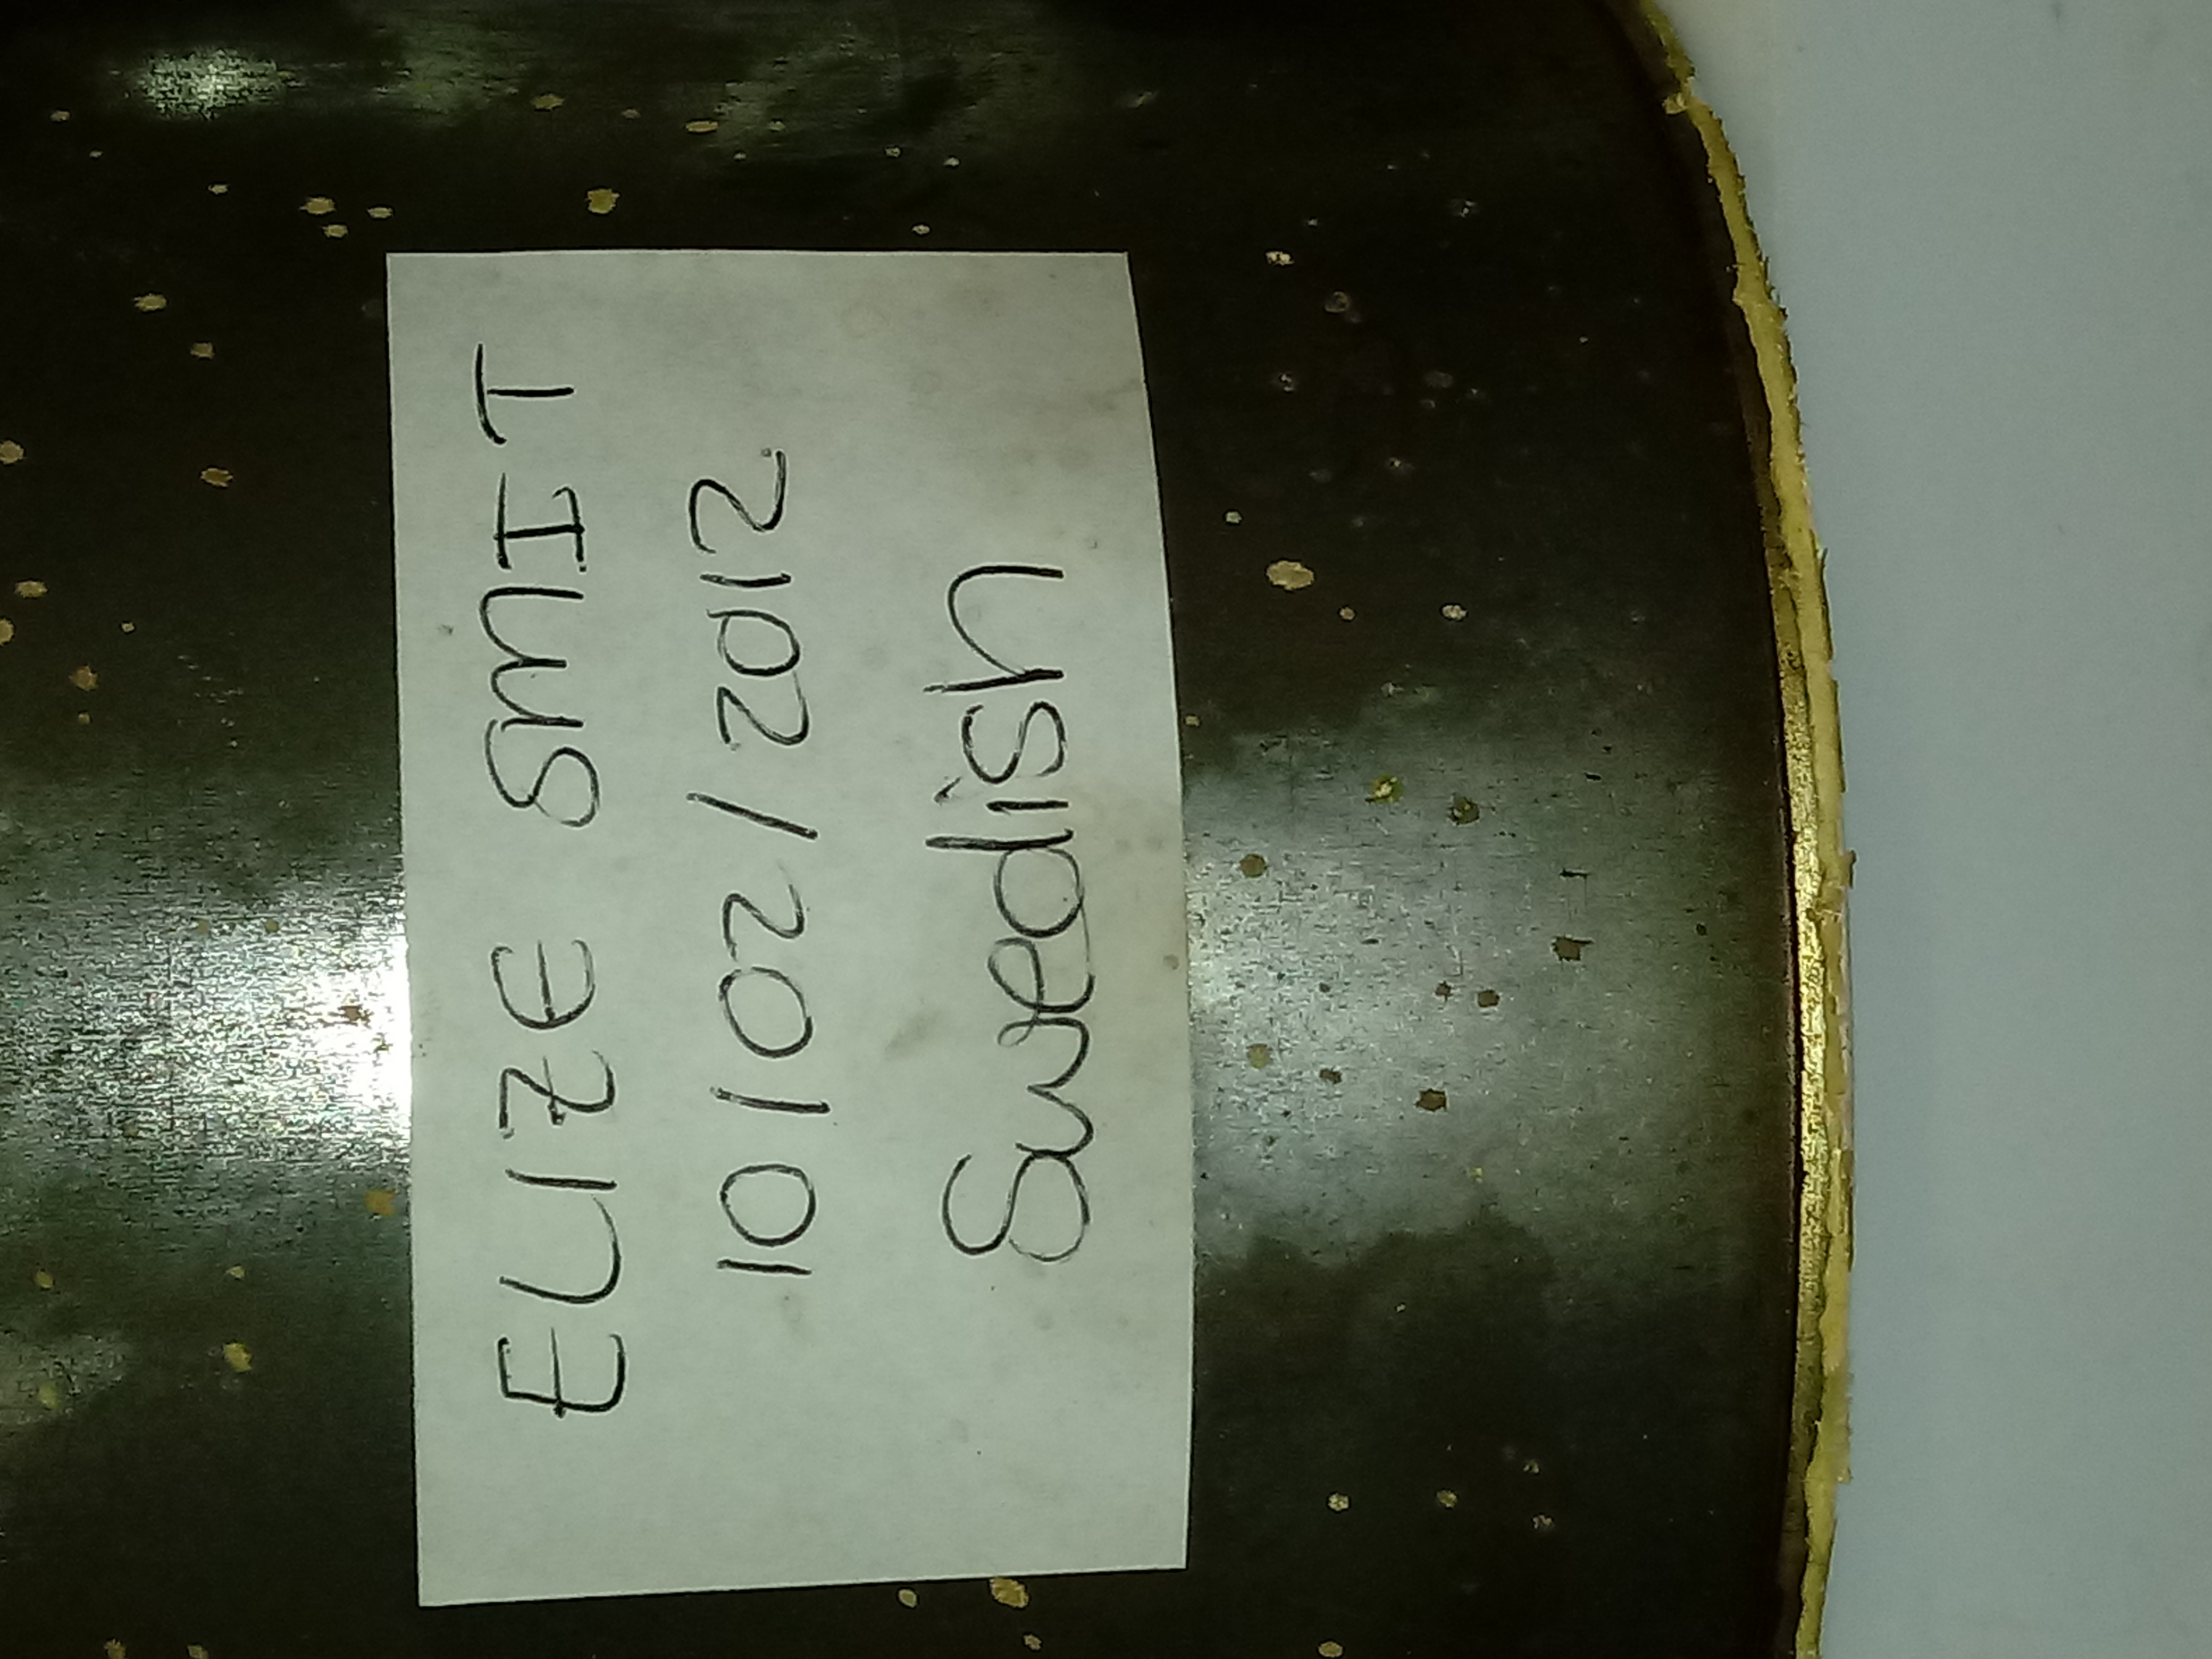 ELIZE SMIT
10/02/2012
Swedish